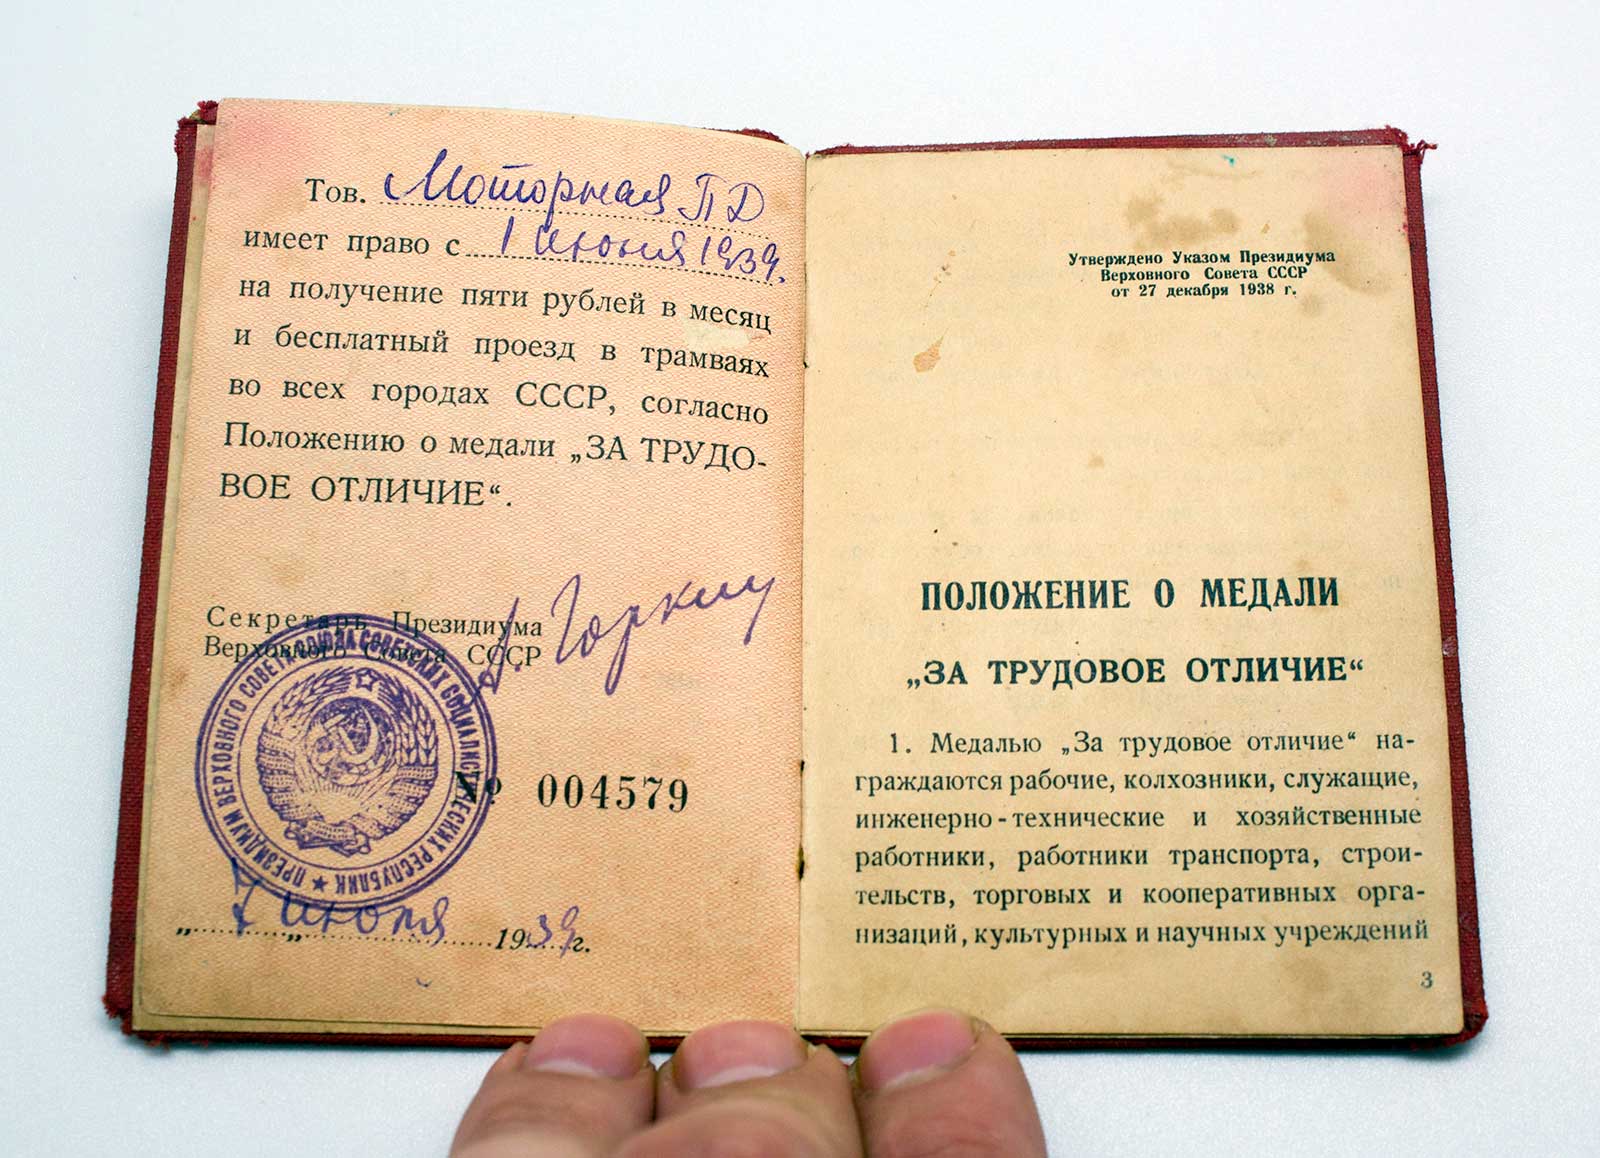 Тов. Моторная П Д
имеет право с 1 июня 1939.
на получение пяти рублей в месяц
и бесплатный проезд в трамваях
во всех городах СССР, согласно
Положению о медали „ЗА ТРУДО-
ВОЕ ОТЛИЧИЕ“.
Секретарь Президиума
Верховного Совета СССР
А. Горкин
ПРЕЗИДИУМ ВЕРХОВНОГО СОВЕТА СОЮЗА СОВЕТСКИХ СОЦИАЛИСТИЧЕСКИХ РЕСПУБЛИК
№ 004579
„7„ июня 1939 г.
Утверждено Указом Президиума
Верховного Совета СССР
от 27 декабря 1938 г.
ПОЛОЖЕНИЕ О МЕДАЛИ
„ЗА ТРУДОВОЕ ОТЛИЧИЕ“
1. Медалью „За трудовое отличие“ на-
граждаются рабочие, колхозники, служащие,
инженерно-технические и хозяйственные
работники, работники транспорта, строи-
тельств, торговых и кооперативных орга-
низаций, культурных и научных учреждений
3